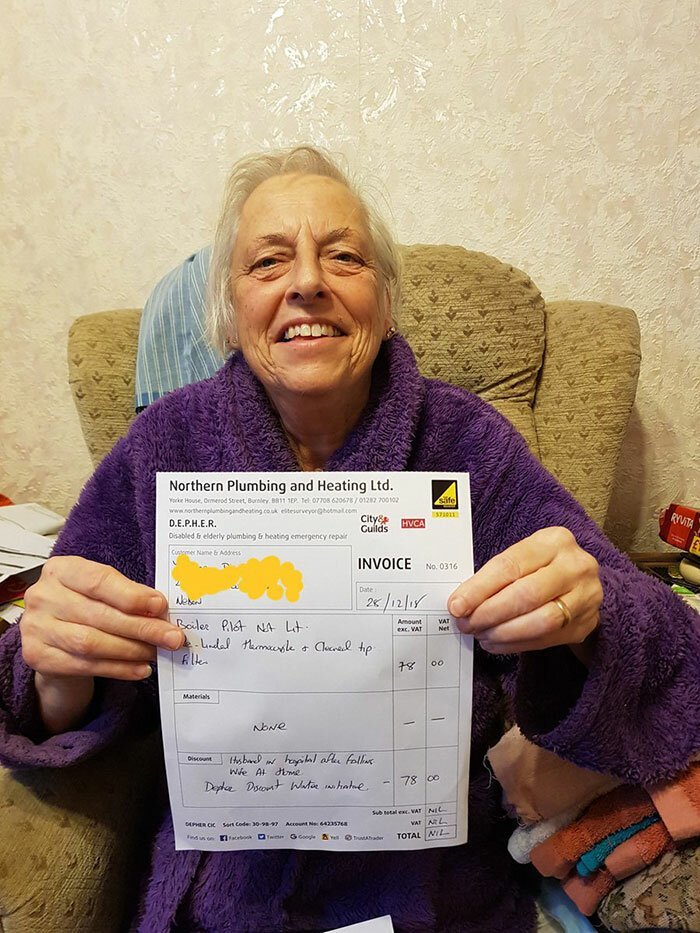 Northern Plumbing and Heating Ltd.
Yorke House, Ormerod Street, Burnley. BB11 1EP. Tel: 07708 620678 / 01282 700102
www.northernplumbingandheating.co.uk elitesurveyor@hotmail.com
D.E.P.H.E.R.
Disabled & elderly plumbing & heating emergency repair
City& Guilds
HVCA
Gas safe
571011
Customer Name & Address
Nelson
INVOICE No. 0316
Date: 28/12/18
Amount exc. VAT
VAT Net
Boiler Pilot Not Lit.
Thermocouple + Cleaned tip
Filter
78 00
Materials
None
— —
Discount Husband in hospital after falling
Wife At Home
Depher Discount Winter initiative. - 78 00
Sub total exc. VAT NIL
VAT NIL
TOTAL NIL
DEPHER CIC Sort Code: 30-98-97 Account No: 64235768
Find us on: Facebook Twitter Google Yell TrustATrader
RYVITA